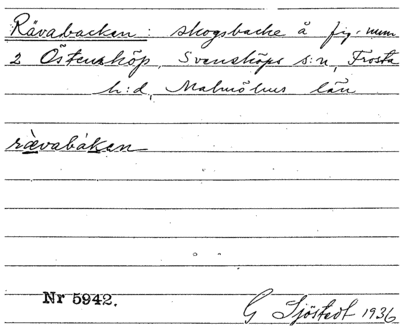 Rävabacken: skogsbacke å fig. num
2 Östensköp, Svensköps s:n, Frosta
h:d, Malmöhus län
rävabákan
Nr 5942.
G Sjöstedt 1936